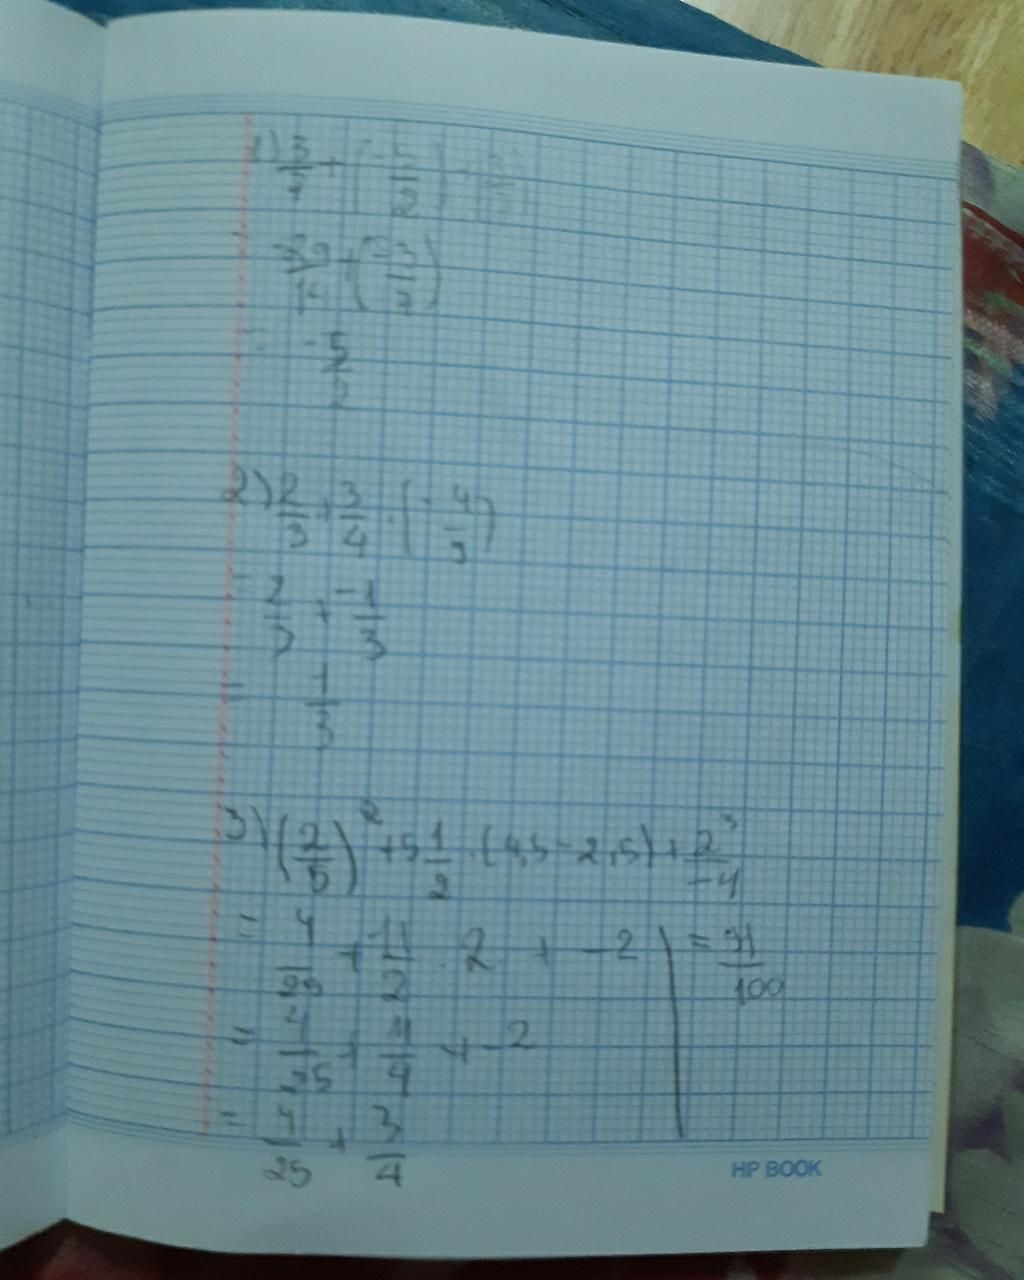 1) 3/7 + (-5/2) + (-3/7)
= -29/14 + (-3/7)
= -5/2
2) 2/3 + 3/4 . (-4/9)
= 2/3 + -1/3
= 1/3
3) (2/5)² + 5 1/2 . (4,5 - 2,5) + 2³/-4
= 4/25 + 11/2 . 2 + -2
= 4/25 + 11/4 + -2
= 4/25 + 3/4
= 91/100
HP BOOK